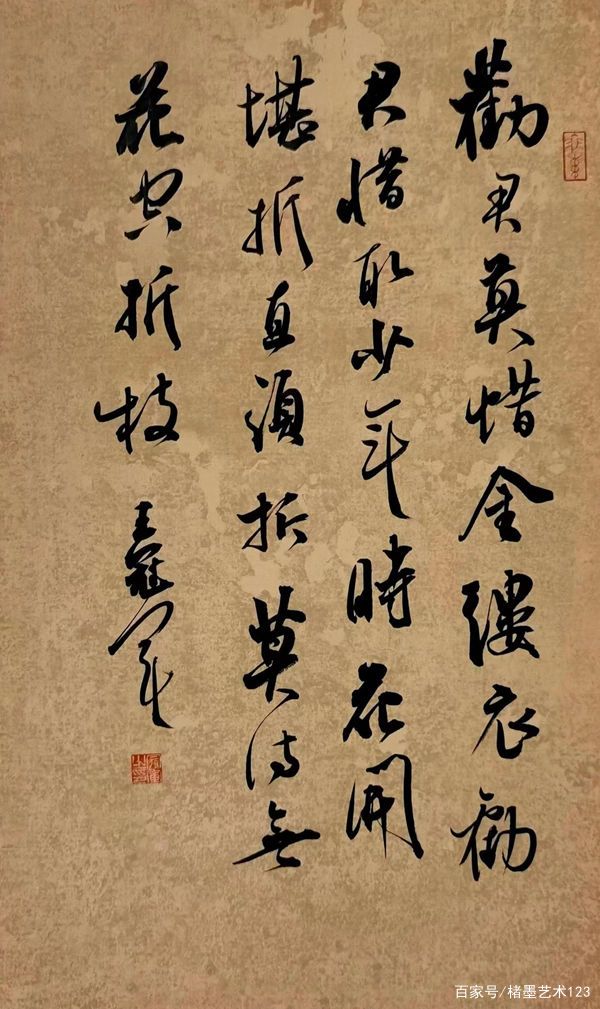 勸君莫惜金縷衣勸
君惜取少年時花開
堪折直須折莫待無
花空折枝 王
百家号/楮墨艺术123